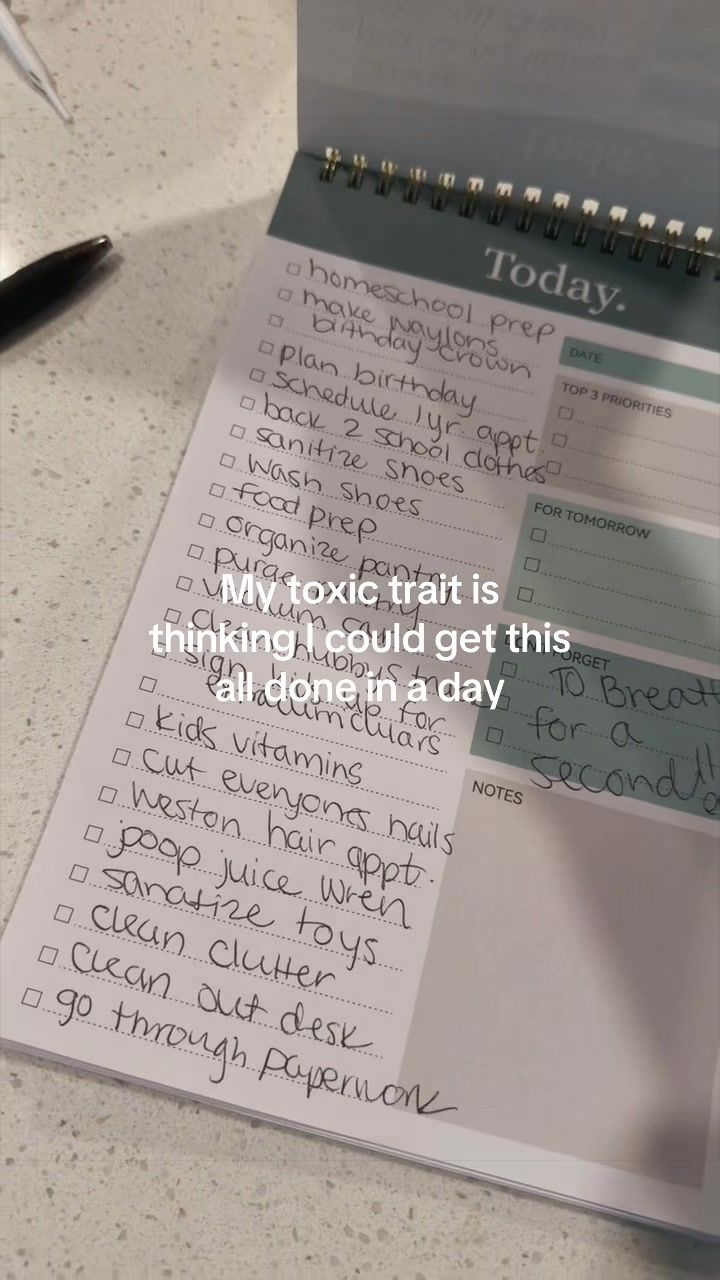 Today.
homeschool prep
make waylons
birthday crown
plan birthday
schedule 1yr. appt.
back 2 school clothes
sanitize shoes
wash shoes
food prep
organize pantry
purge
vacuum car
clean hubbys
sign kids up for
extracurriculars
kids vitamins
cut everyones nails
Weston hair appt.
poop juice wren
sanatize toys
clean clutter
clean out desk
go through paperwork
DATE
TOP 3 PRIORITIES
FOR TOMORROW
FORGET
TO Breath
for a
second
NOTES
My toxic trait is
thinking I could get this
all done in a day